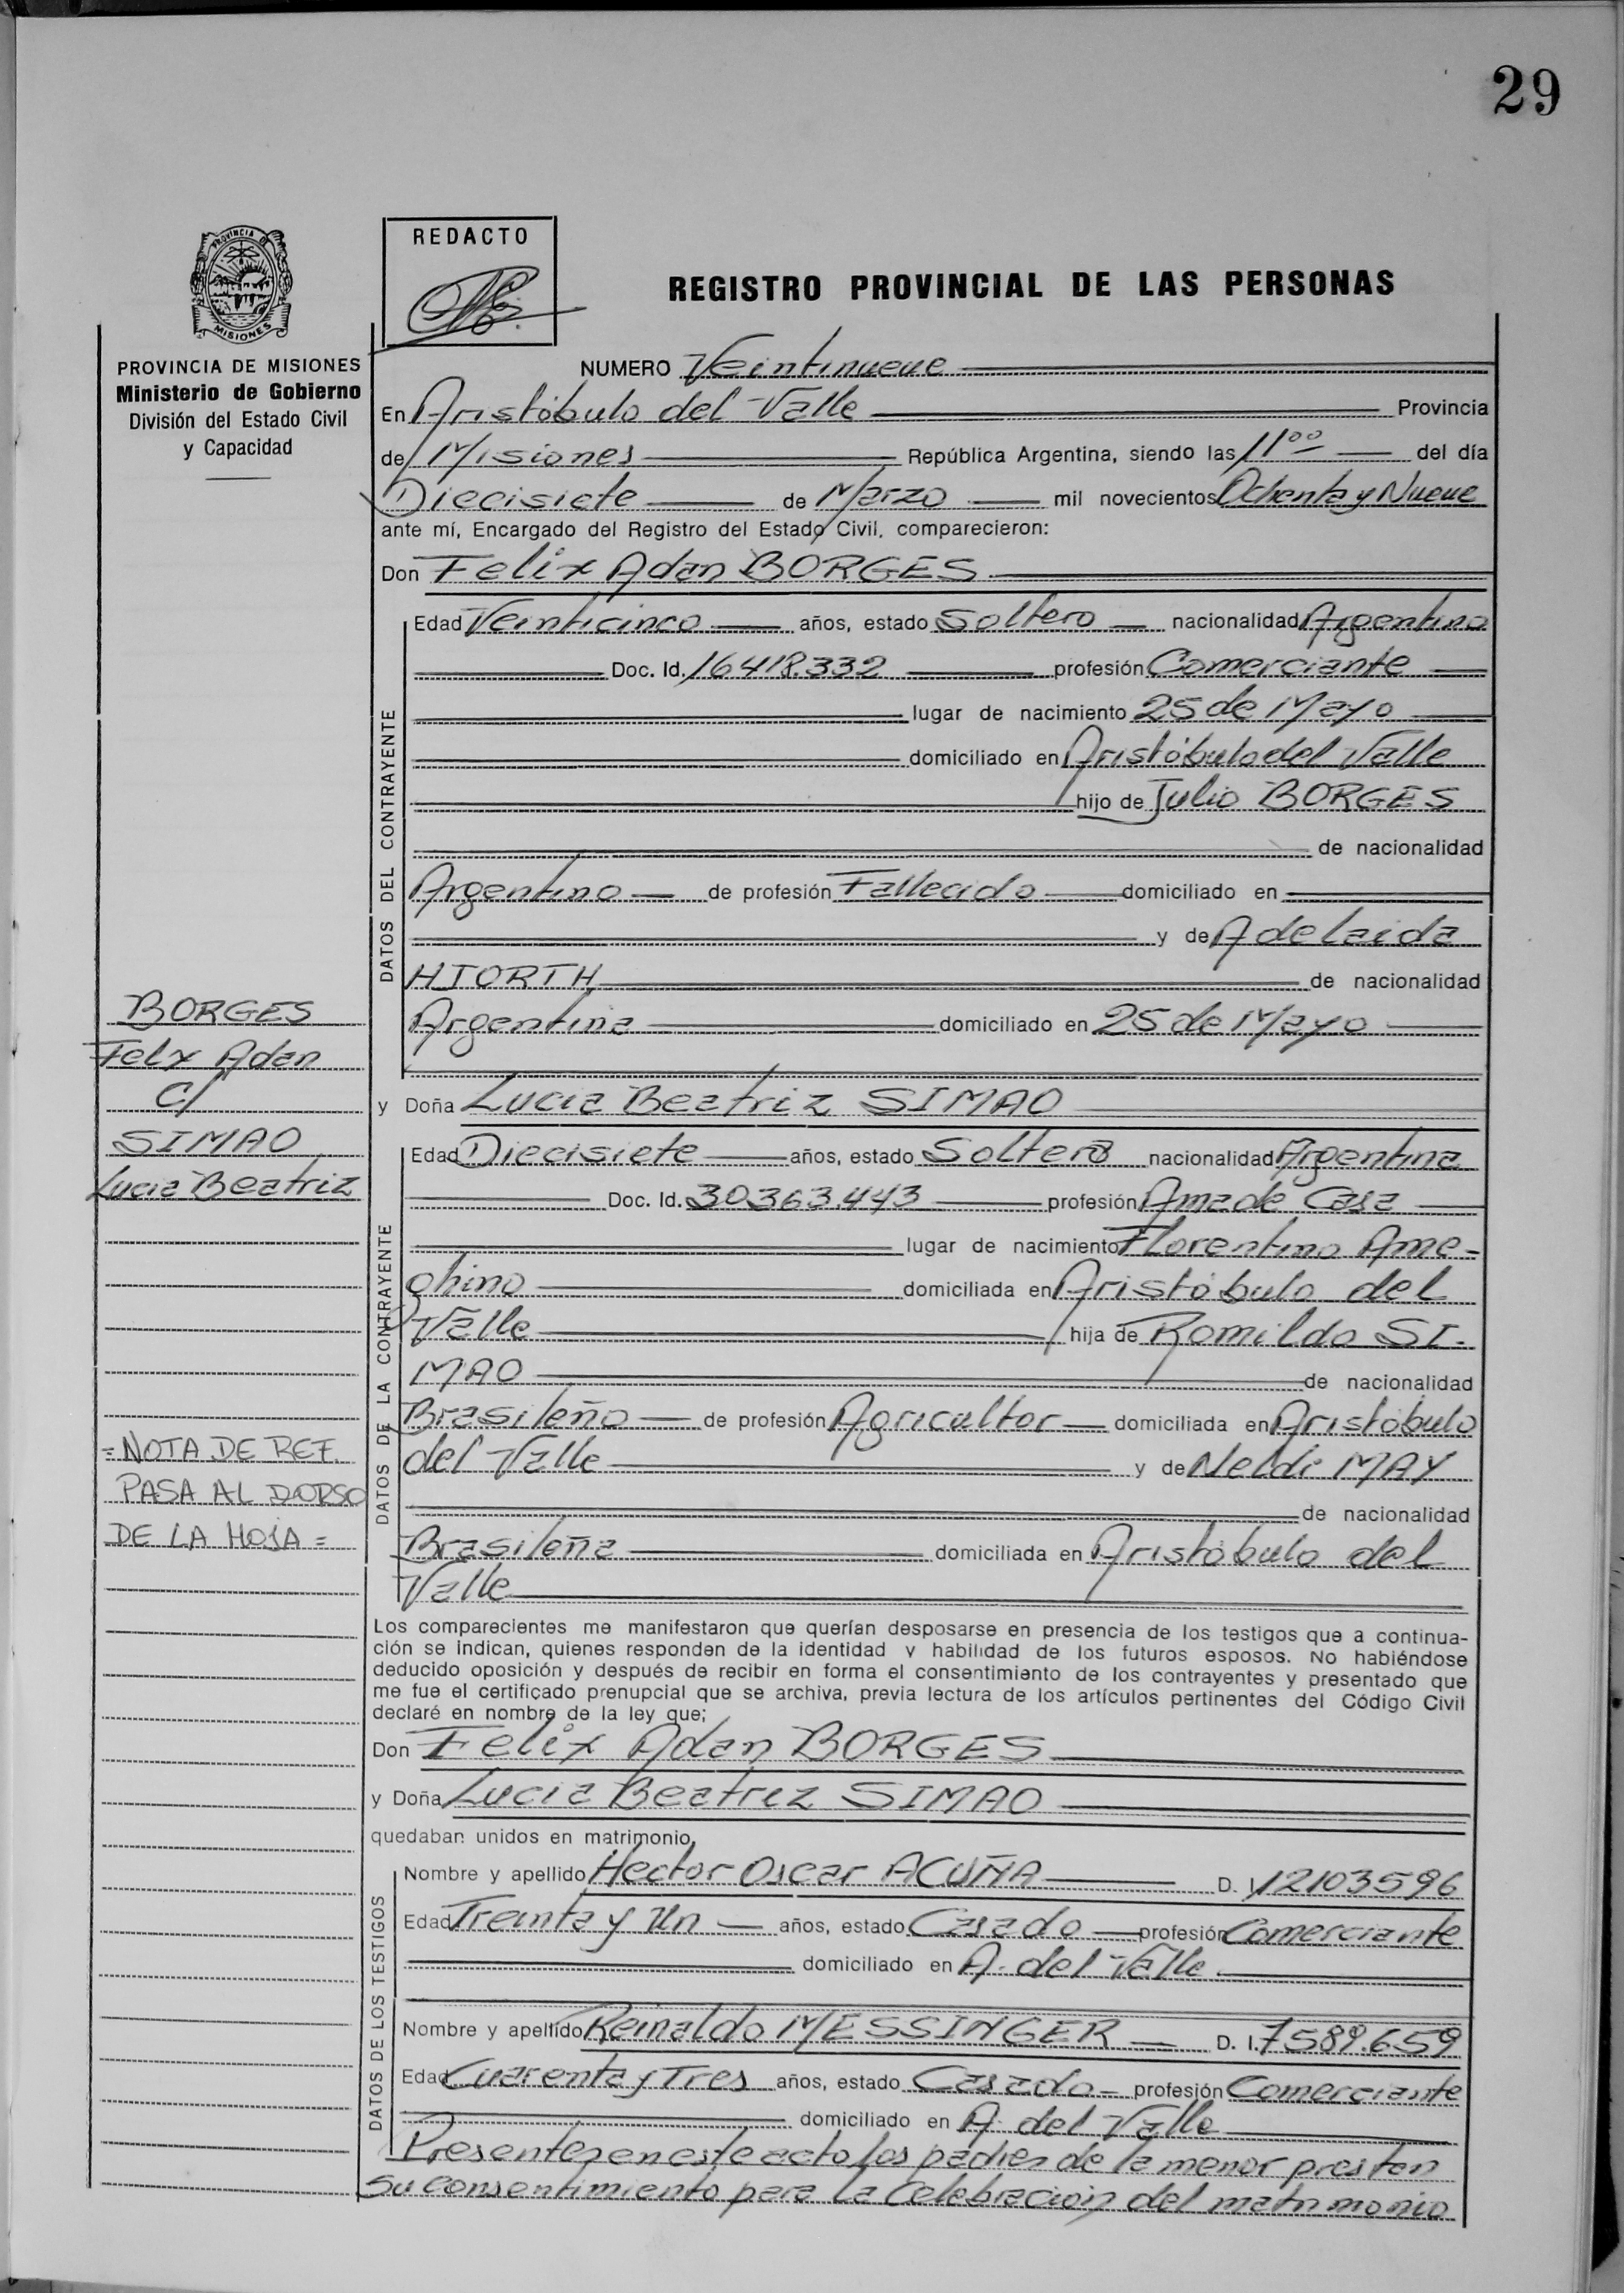 29
REDACTO
REGISTRO PROVINCIAL DE LAS PERSONAS
PROVINCIA DE
MISIONES
PROVINCIA DE MISIONES
Ministerio de Gobierno
División del Estado Civil
y Capacidad
NUMERO Veintinueve
En Aristóbulo del Valle Provincia
de Misiones República Argentina, siendo las 11 00 del día
Diecisiete de Marzo mil novecientos Ochenta y Nueve
ante mí, Encargado del Registro del Estado Civil, comparecieron:
Don Felix Adan BORGES
DATOS DEL CONTRAYENTE
Edad Veinticinco años, estado Soltero nacionalidad Argentino
Doc. Id. 16418.332 profesión Comerciante
lugar de nacimiento 25 de Mayo
domiciliado en Aristóbulo del Valle
hijo de Julio BORGES
de nacionalidad
Argentino de profesión Fallecido domiciliado en
y de Adelaida
HJORTH de nacionalidad
Argentina domiciliado en 25 de Mayo
BORGES
Felix Adan
C/
SIMAO
Lucia Beatriz
y Doña Lucia Beatriz SIMAO
DATOS DE LA CONTRAYENTE
Edad Diecisiete años, estado Soltera nacionalidad Argentina
Doc. Id. 30363.443 profesión Ama de Casa
lugar de nacimiento Florentino Ame-
ghino domiciliada en Aristóbulo del
Valle hija de Romildo SI-
MAO de nacionalidad
Brasileño de profesión Agricultor domiciliada en Aristóbulo
del Valle y de Neldi MAY
de nacionalidad
Brasileña domiciliada en Aristóbulo del
Valle
=NOTA DE REF.
PASA AL DORSO
DE LA HOJA=
Los comparecientes me manifestaron que querían desposarse en presencia de los testigos que a continua-
ción se indican, quienes responden de la identidad y habilidad de los futuros esposos. No habiéndose
deducido oposición y después de recibir en forma el consentimiento de los contrayentes y presentado que
me fue el certificado prenupcial que se archiva, previa lectura de los artículos pertinentes del Código Civil
declaré en nombre de la ley que;
Don Felix Adan BORGES
y Doña Lucia Beatriz SIMAO
quedaban unidos en matrimonio,
DATOS DE LOS TESTIGOS
Nombre y apellido Hector Oscar ACUÑA D. I. 12103596
Edad Treinta y Un años, estado Casado profesión Comerciante
domiciliado en A. del Valle
Nombre y apellido Reinaldo MESSINGER D. I. 7589.659
Edad Cuarenta y Tres años, estado Casado profesión Comerciante
domiciliado en A. del Valle
Presentes en este acto los padres de la menor prestan
su consentimiento para la celebración del matrimonio